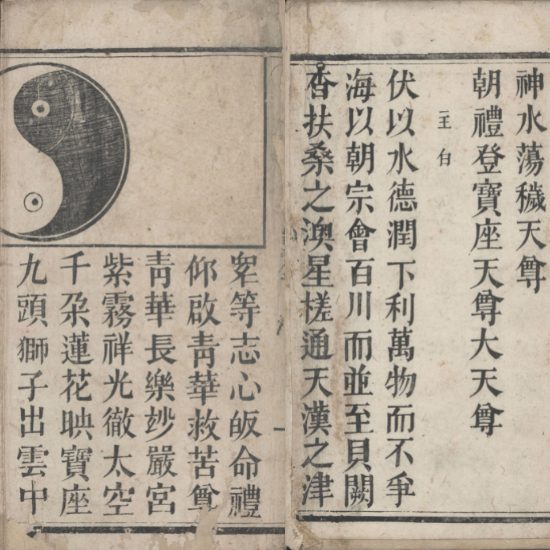 神水蕩穢天尊
朝禮登寶座天尊大天尊
伏以水德潤下利萬物而不爭
海以朝宗會百川而並至貝闕
香扶桑之澳星槎通天漢之津
眾等志心皈命禮
仰啟青華救苦尊
青華長樂玅嚴宮
紫霧祥光徹太空
千朶蓮花映寶座
九頭獅子出雲中